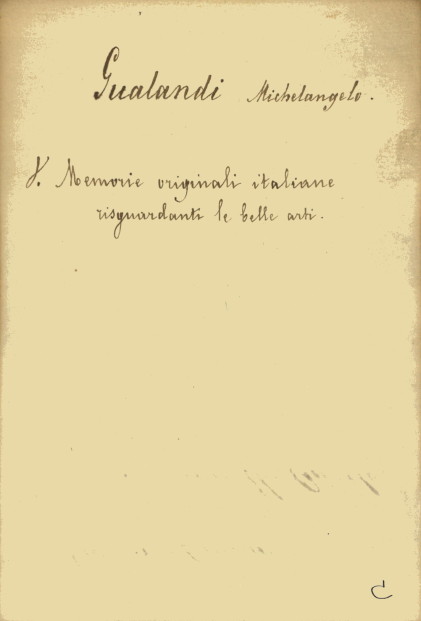 Gualandi Michelangelo.
V. Memorie originali italiane
risguardanti le belle arti.
C